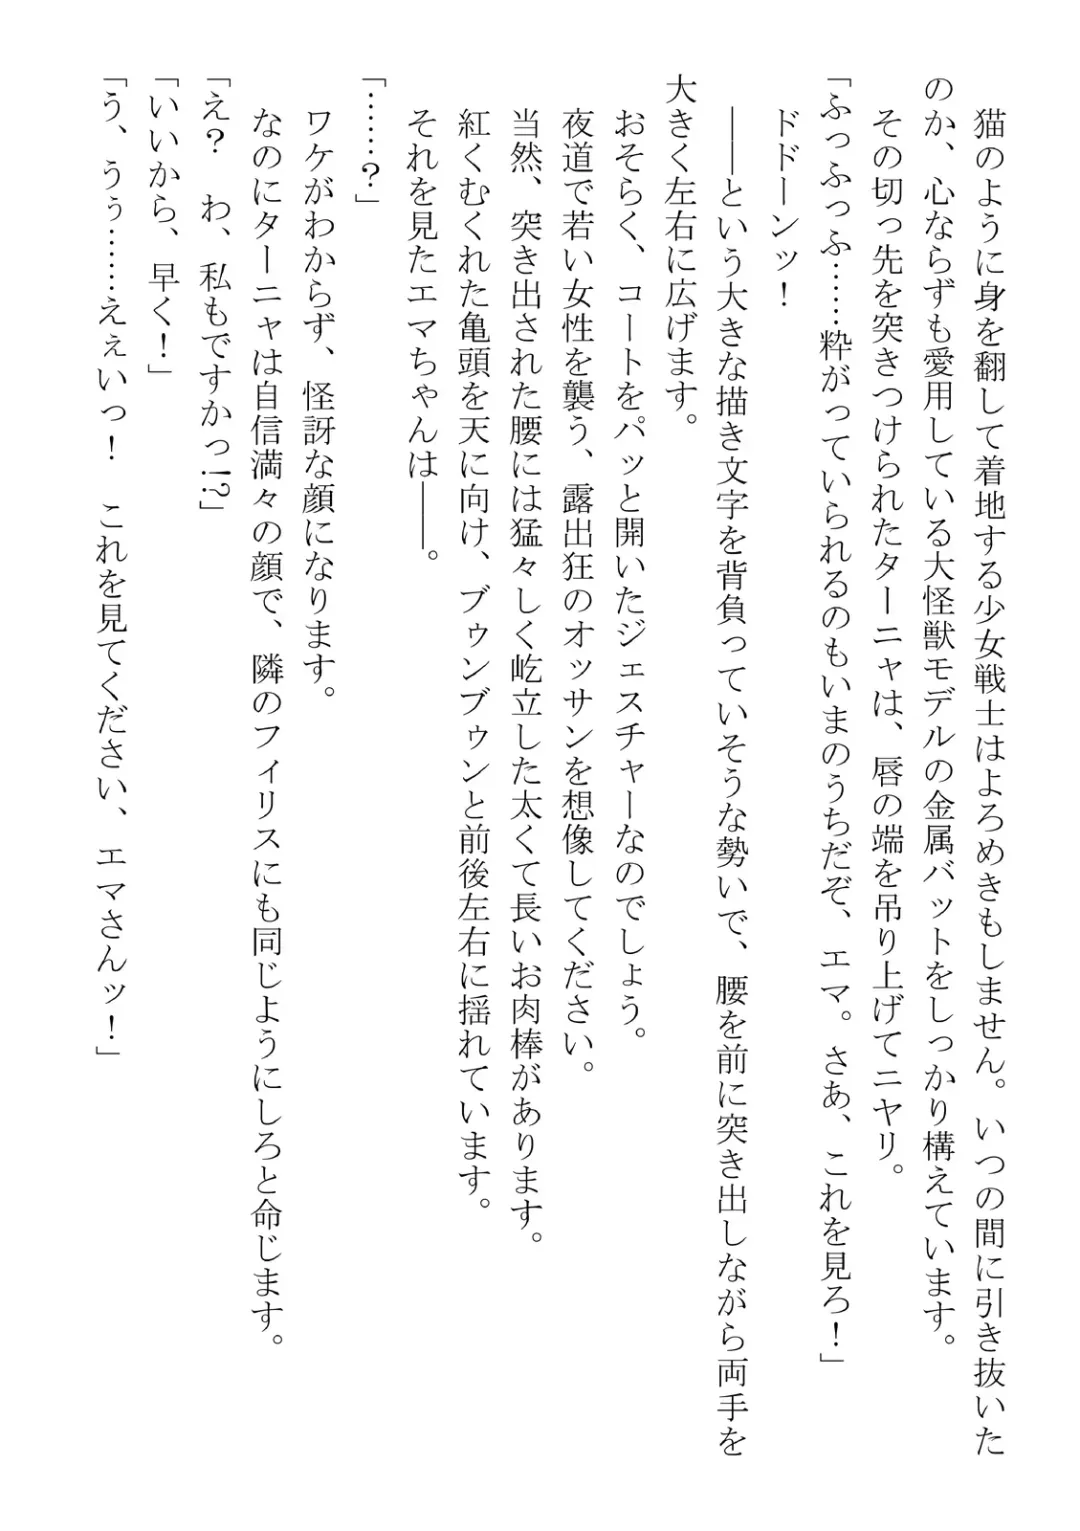 猫のように身を翻して着地する少女戦士はよろめきもしません。いつの間に引き抜いた
のか、心ならずも愛用している大怪獣モデルの金属バットをしっかり構えています。
その切っ先を突きつけられたターニャは、唇の端を吊り上げてニヤリ。
「ふっふっふ……粋がっていられるのもいまのうちだぞ、エマ。さあ、これを見ろ！」
ドドーンッ！
――という大きな描き文字を背負っていそうな勢いで、腰を前に突き出しながら両手を
大きく左右に広げます。
おそらく、コートをパッと開いたジェスチャーなのでしょう。
夜道で若い女性を襲う、露出狂のオッサンを想像してください。
当然、突き出された腰には猛々しく屹立した太くて長いお肉棒があります。
紅くむくれた亀頭を天に向け、ブゥンブゥンと前後左右に揺れています。
それを見たエマちゃんは――。
「……？」
ワケがわからず、怪訝な顔になります。
なのにターニャは自信満々の顔で、隣のフィリスにも同じようにしろと命じます。
「え？　わ、私もですかっ!?」
「いいから、早く！」
「う、うぅ……えぇいっ！　これを見てください、エマさんッ！」